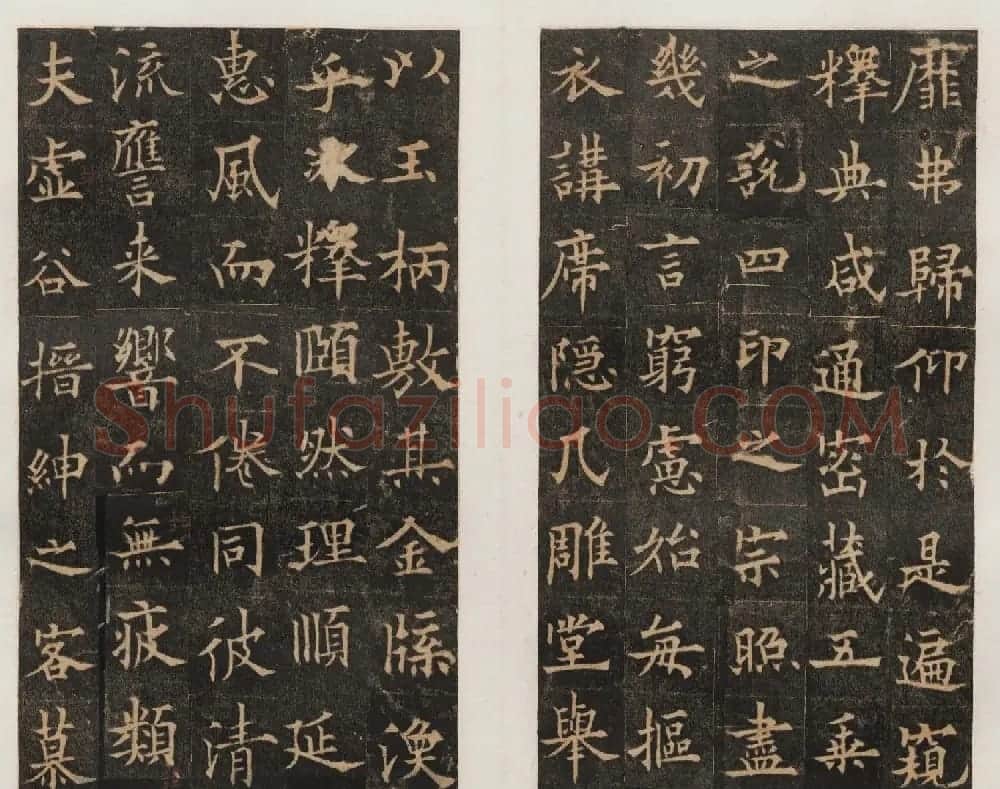 靡弗歸仰於是遍窺
釋典咸通密藏五乗
之說四印之宗照盡
幾初言窮慮始每摳
衣講席隱几雕堂舉
以玉柄敷其金牒渙
乎氷釋頤然理順延
惠風而不倦同彼清
流譍来響而無疲類
夫虛谷搢紳之客慕
Shufaziliao.COM